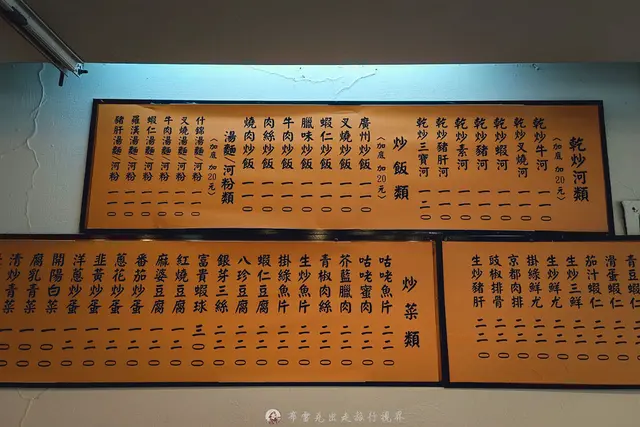 乾炒河類
〈加底 加20元〉
乾炒牛河 一一〇
乾炒叉燒河 一一〇
乾炒蝦河 一一〇
乾炒豬河 一一〇
乾炒素河 一一〇
乾炒豬肝河 一一〇
乾炒三寶河 一二〇
炒飯類
〈加底 加20元〉
廣州炒飯 一一〇
叉燒炒飯 一一〇
蝦仁炒飯 一一〇
臘味炒飯 一一〇
牛肉炒飯 一一〇
肉絲炒飯 一一〇
燒肉炒飯 一一〇
湯麵/河粉類
〈加底 加20元〉
什錦湯麵/河粉 一一〇
叉燒湯麵/河粉 一一〇
牛肉湯麵/河粉 一一〇
蝦仁湯麵/河粉 一一〇
羅漢湯麵/河粉 一一〇
豬肝湯麵/河粉 一一〇
青豆
滑蛋蝦仁 二二〇
茄汁蝦仁 二二〇
生炒三鮮 二二〇
生炒鮮尤 二二〇
掛綠鮮尤 二二〇
京都肉排 二二〇
豉椒排骨 二二〇
生炒豬肝 二二〇
炒菜類
咕咾魚片 二二〇
咕咾蜜肉 二二〇
芥藍臘肉 二二〇
青椒肉絲 二二〇
生炒魚片 二二〇
掛綠魚片 二二〇
蝦仁豆腐 二二〇
八珍豆腐 二二〇
銀芽三絲 二二〇
富貴蝦球 三〇〇
紅燒豆腐
麻婆豆腐
番茄炒蛋
蔥花炒蛋
韭黃炒蛋
洋蔥炒蛋
開陽白菜
腐乳青菜
清炒青菜